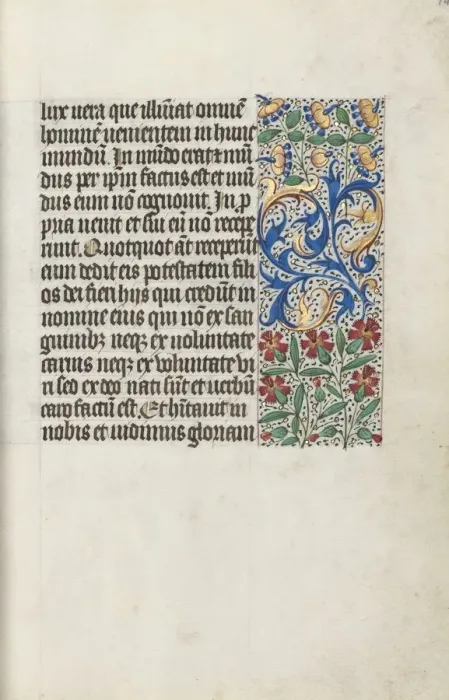 lux uera que illuīat omnē
hominē uenientem in hunc
mundū. In mūdo erat & mū
dus per ip̄m factus est et mū
dus eum nō cognouit. In p
pria uenit et sui eū nō recepe
runt. Quotquot āt receperūt
eum dedit eis potestatem fili
os dei fieri hijs qui credūt in
nomine eius qui nō ex san
guinibz neqz ex uoluntate
carnis neqz ex voluntate vi
ri sed ex deo nati sūt et uerbū
caro factū est. Et hītauit in
nobis et uidimus gloriam